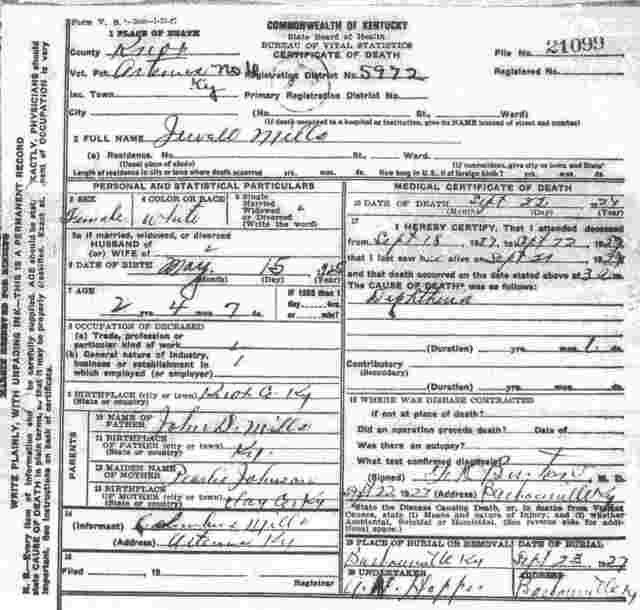 Form V. S.
COMMONWEALTH OF KENTUCKY
State Board of Health
BUREAU OF VITAL STATISTICS
CERTIFICATE OF DEATH
1 PLACE OF DEATH
County Knox
File No. 21099
Vot. Pct. Artemus No
Ky
Registration District No. 5972
Registered No.
Inc. Town
Primary Registration District No.
City
(No. St., Ward)
(If death occurred in a hospital or institution, give its NAME instead of street and number)
2 FULL NAME Jewell Mills
(a) Residence. No. St., Ward.
(Usual place of abode)
(If nonresident, give city or town and State)
Length of residence in city or town where death occurred yrs. mos. ds. How long in U. S., if of foreign birth? yrs. mos. ds.
PERSONAL AND STATISTICAL PARTICULARS
3 SEX
Female
4 COLOR OR RACE
White
5 Single
Married
Widowed
or Divorced
(Write the word)
5a If married, widowed, or divorced
HUSBAND of
(or) WIFE of
6 DATE OF BIRTH May 15
(Month) (Day) (Year)
7 AGE
2 yrs. 4 mos. 7 ds.
If LESS than 1
day, hrs.
or min.
8 OCCUPATION OF DECEASED
(a) Trade, profession or
particular kind of work
(b) General nature of industry,
business or establishment in
which employed (or employer)
9 BIRTHPLACE (city or town) Knox Co. Ky
(State or country)
PARENTS
10 NAME OF
FATHER John D. Mills
11 BIRTHPLACE
OF FATHER (city or town) Ky.
(State or country)
12 MAIDEN NAME
OF MOTHER Pearlie Johnson
13 BIRTHPLACE
OF MOTHER (city or town) Clay Co. Ky
(State or country)
14
(Informant) Columbus Mills
(Address) Artemus Ky
15
Filed , 19
Registrar
MEDICAL CERTIFICATE OF DEATH
16 DATE OF DEATH Sept 22 1927
(Month) (Day) (Year)
17
I HEREBY CERTIFY, That I attended deceased
from Sept 18 1927, to Sept 22, 1927
that I last saw h alive on Sept 21
and that death occurred on the date stated above at
The CAUSE OF DEATH* was as follows:
Diphtheria
(Duration) yrs. mos. ds.
Contributory
(Secondary)
(Duration) yrs. mos. ds.
18 WHERE WAS DISEASE CONTRACTED
if not at place of death?
Did an operation precede death? Date of
Was there an autopsy?
What test confirmed diagnosis?
(Signed) M. D.
Sept 22 1927 (Address) Barbourville Ky
*State the Disease Causing Death, or, in deaths from Violent
Causes, state (1) Means and nature of Injury; and (2) Whether
Accidental, Suicidal or Homicidal. (See reverse side for additional space.)
19 PLACE OF BURIAL OR REMOVAL
Barbourville Ky
DATE OF BURIAL
Sept 23 1927
20 UNDERTAKER
Hopper
ADDRESS
Barbourville Ky
MARGIN RESERVED FOR BINDING
WRITE PLAINLY, WITH UNFADING INK—THIS IS A PERMANENT RECORD
N. B.—Every item of information should be carefully supplied. AGE should be stated EXACTLY. PHYSICIANS should
state CAUSE OF DEATH in plain terms, so that it may be properly classified. Exact statement of OCCUPATION is very
important. See instructions on back of certificate.